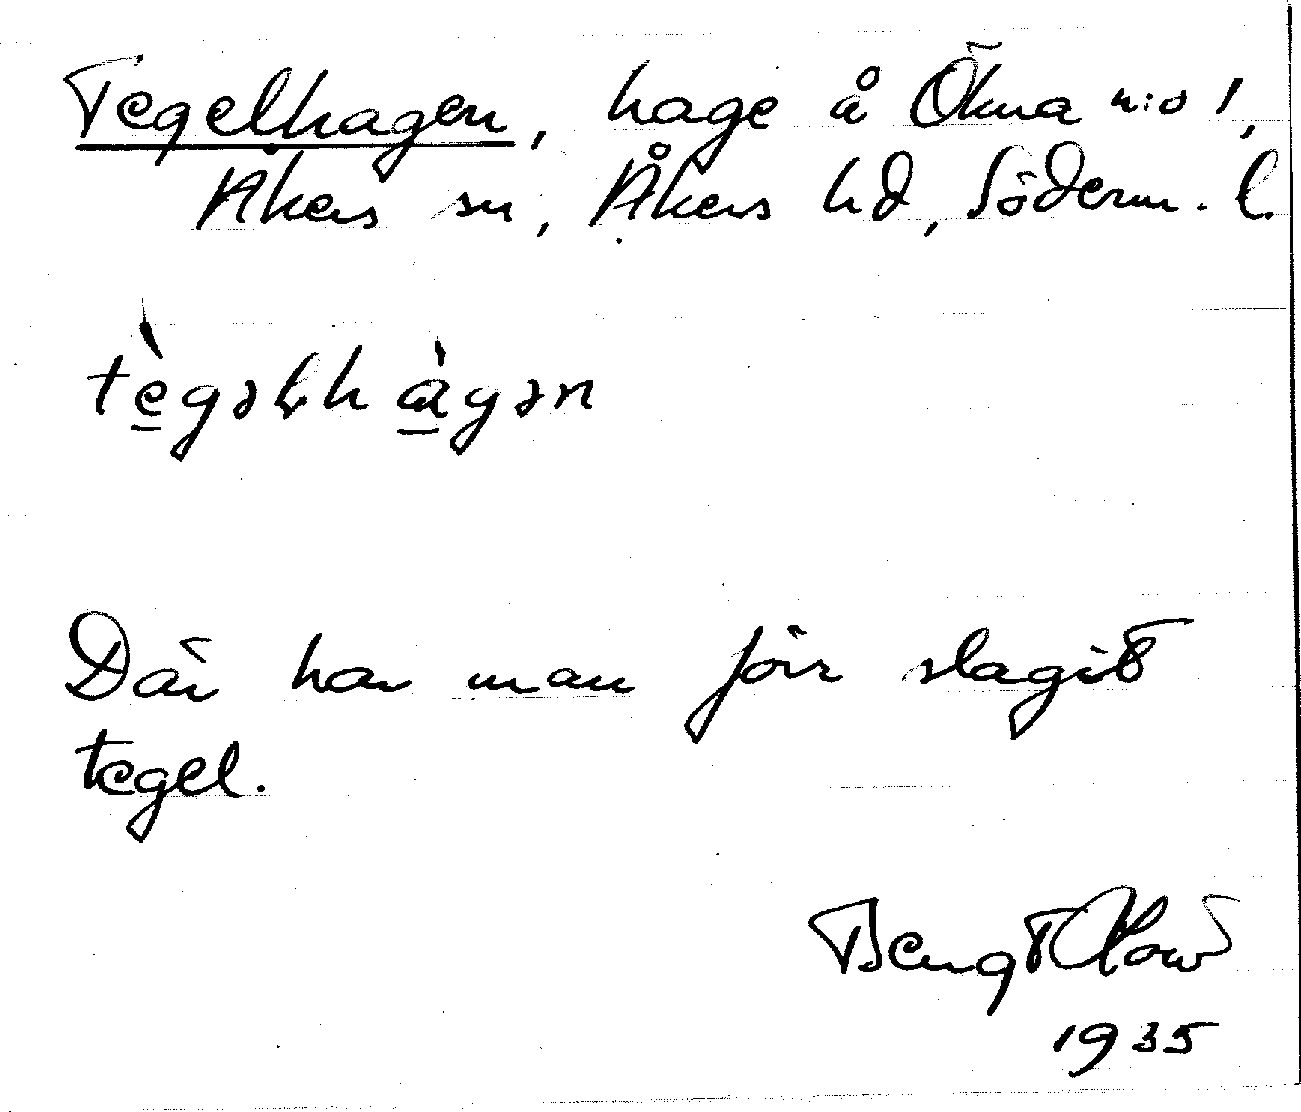 Tegelhagen, hage å Ökna n:o 1,
Åkers sn, Åkers hd, Söderm. l.
tè̱gəlhà̱gən
Där har man förr slagit
tegel.
Bengt
1935